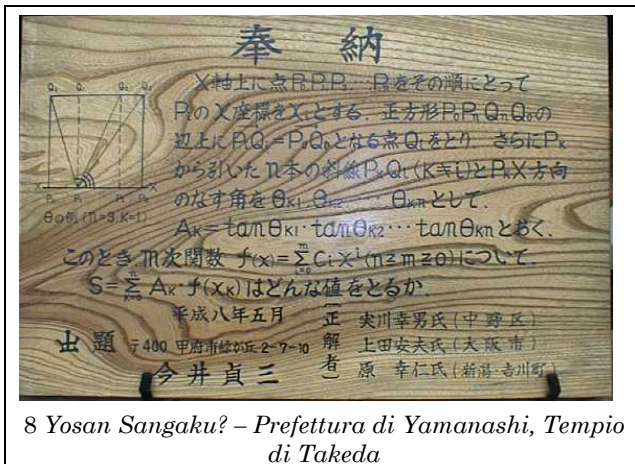 奉 納
X軸上に点P₀.P₁.P₂…Pₙをその順にとって
PᵢのX座標をXᵢとする. 正方形P₀PₙQₙQ₀の
辺上にPᵢQᵢ=P₀Q₀となる点Qᵢをとり さらにPₖ
から引いたn本の斜線PₖQᵢ(K≠i)とPₖX方向
のなす角をθₖ₁.θₖ₂… θₖₙとして.
Aₖ=tanθₖ₁・tanθₖ₂…tanθₖₙとおく.
このときm次関数 f(x)=∑ᵢ₌₀ᵐCᵢxⁱ(n≧m≧0)について.
S=∑ₖ₌₀ⁿAₖ・f(xₖ)はどんな値をとるか.
Q₀ Q₁ Q₂ Q₃
X X
P₀ P₁ P₂ P₃
θの例(n=3.K=1)
平成八年五月
出題 〒400 甲府市緑が丘2-7-10
今井貞三
[正解者]
実川幸男氏(中野区)
上田安夫氏(大阪市)
原 幸仁氏(新潟・吉川町)
8 Yosan Sangaku? – Prefettura di Yamanashi, Tempio
di Takeda